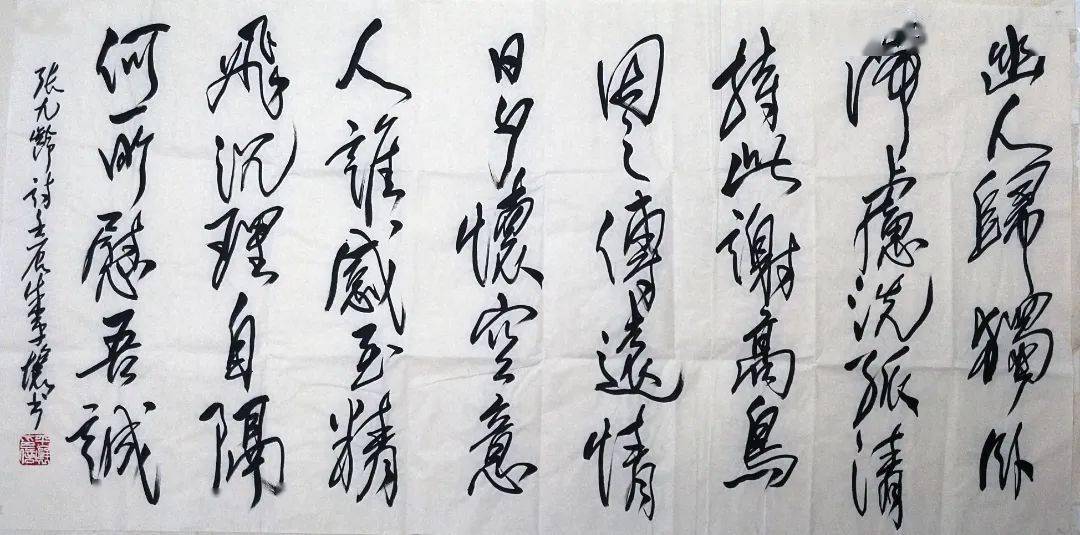 幽人歸獨卧
滯慮洗孤清
持此謝高鳥
因之傳遠情
日夕懷空意
人誰感至精
飛沉理自隔
何所慰吾誠
张九齡詩壬辰年李书